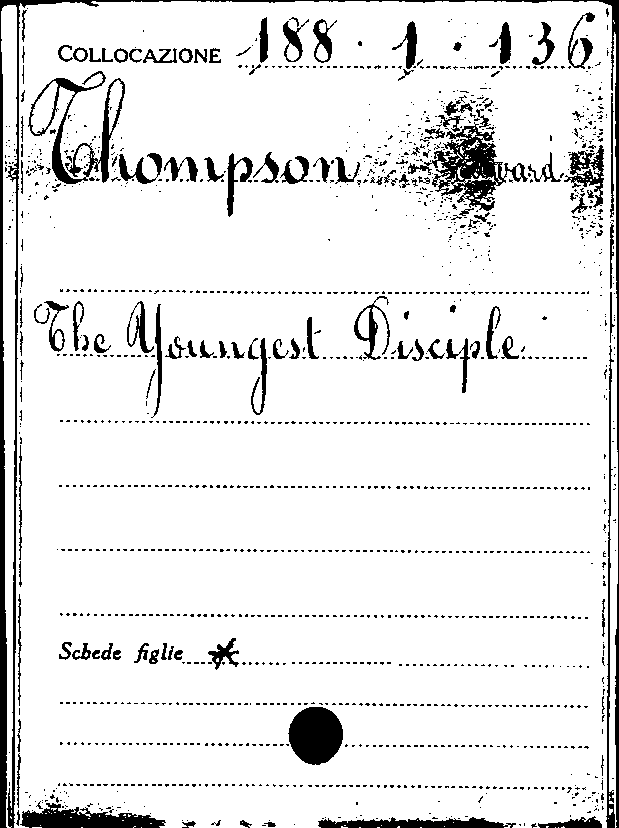 COLLOCAZIONE 188 · 1 · 136
Thompson Edward
The Youngest Disciple
Schede figlie *